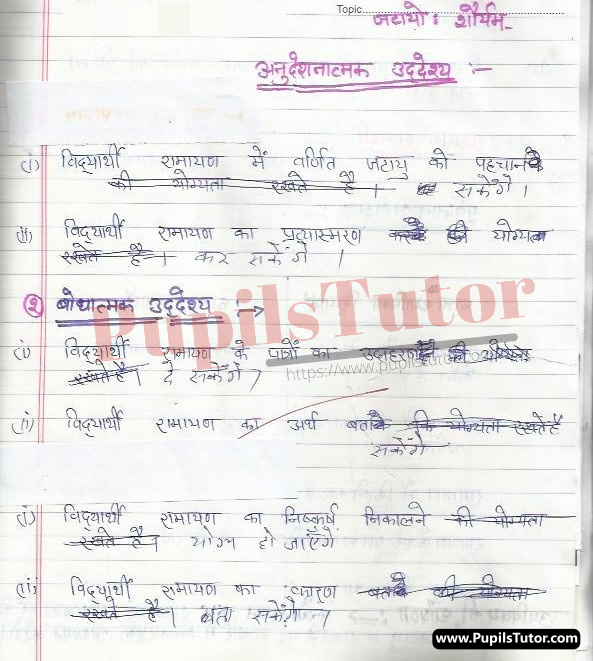 Topic
जटायो: शौर्यम्
अनुदेशनात्मक उद्देश्य :-
(i) विद्यार्थी रामायण में वर्णित जटायु को पहचान
की योग्यता रखते है। सकेंगे।
(ii) विद्यार्थी रामायण का प्रत्यास्मरण करने की योग्यता
रखते है। कर सकेंगे।
२ बोधात्मक उद्देश्य :-→
PupilsTutor
(i) विद्यार्थी रामायण के पात्रों का उदाहरण देने की योग्यता
https://www.pupilstutor.com
रखते है। दे सकेंगे।
(ii) विद्यार्थी रामायण का अर्थ बताने कि योग्यता रखते है
सकेंगे
(i) विद्यार्थी रामायण का निष्कर्ष निकालने की योग्यता
रखते है। योग्य हो जाएंगे
(ii) विद्यार्थी रामायण का कारण बताने की योग्यता
रखते है। बता सकेंगे।
www.PupilsTutor.Com